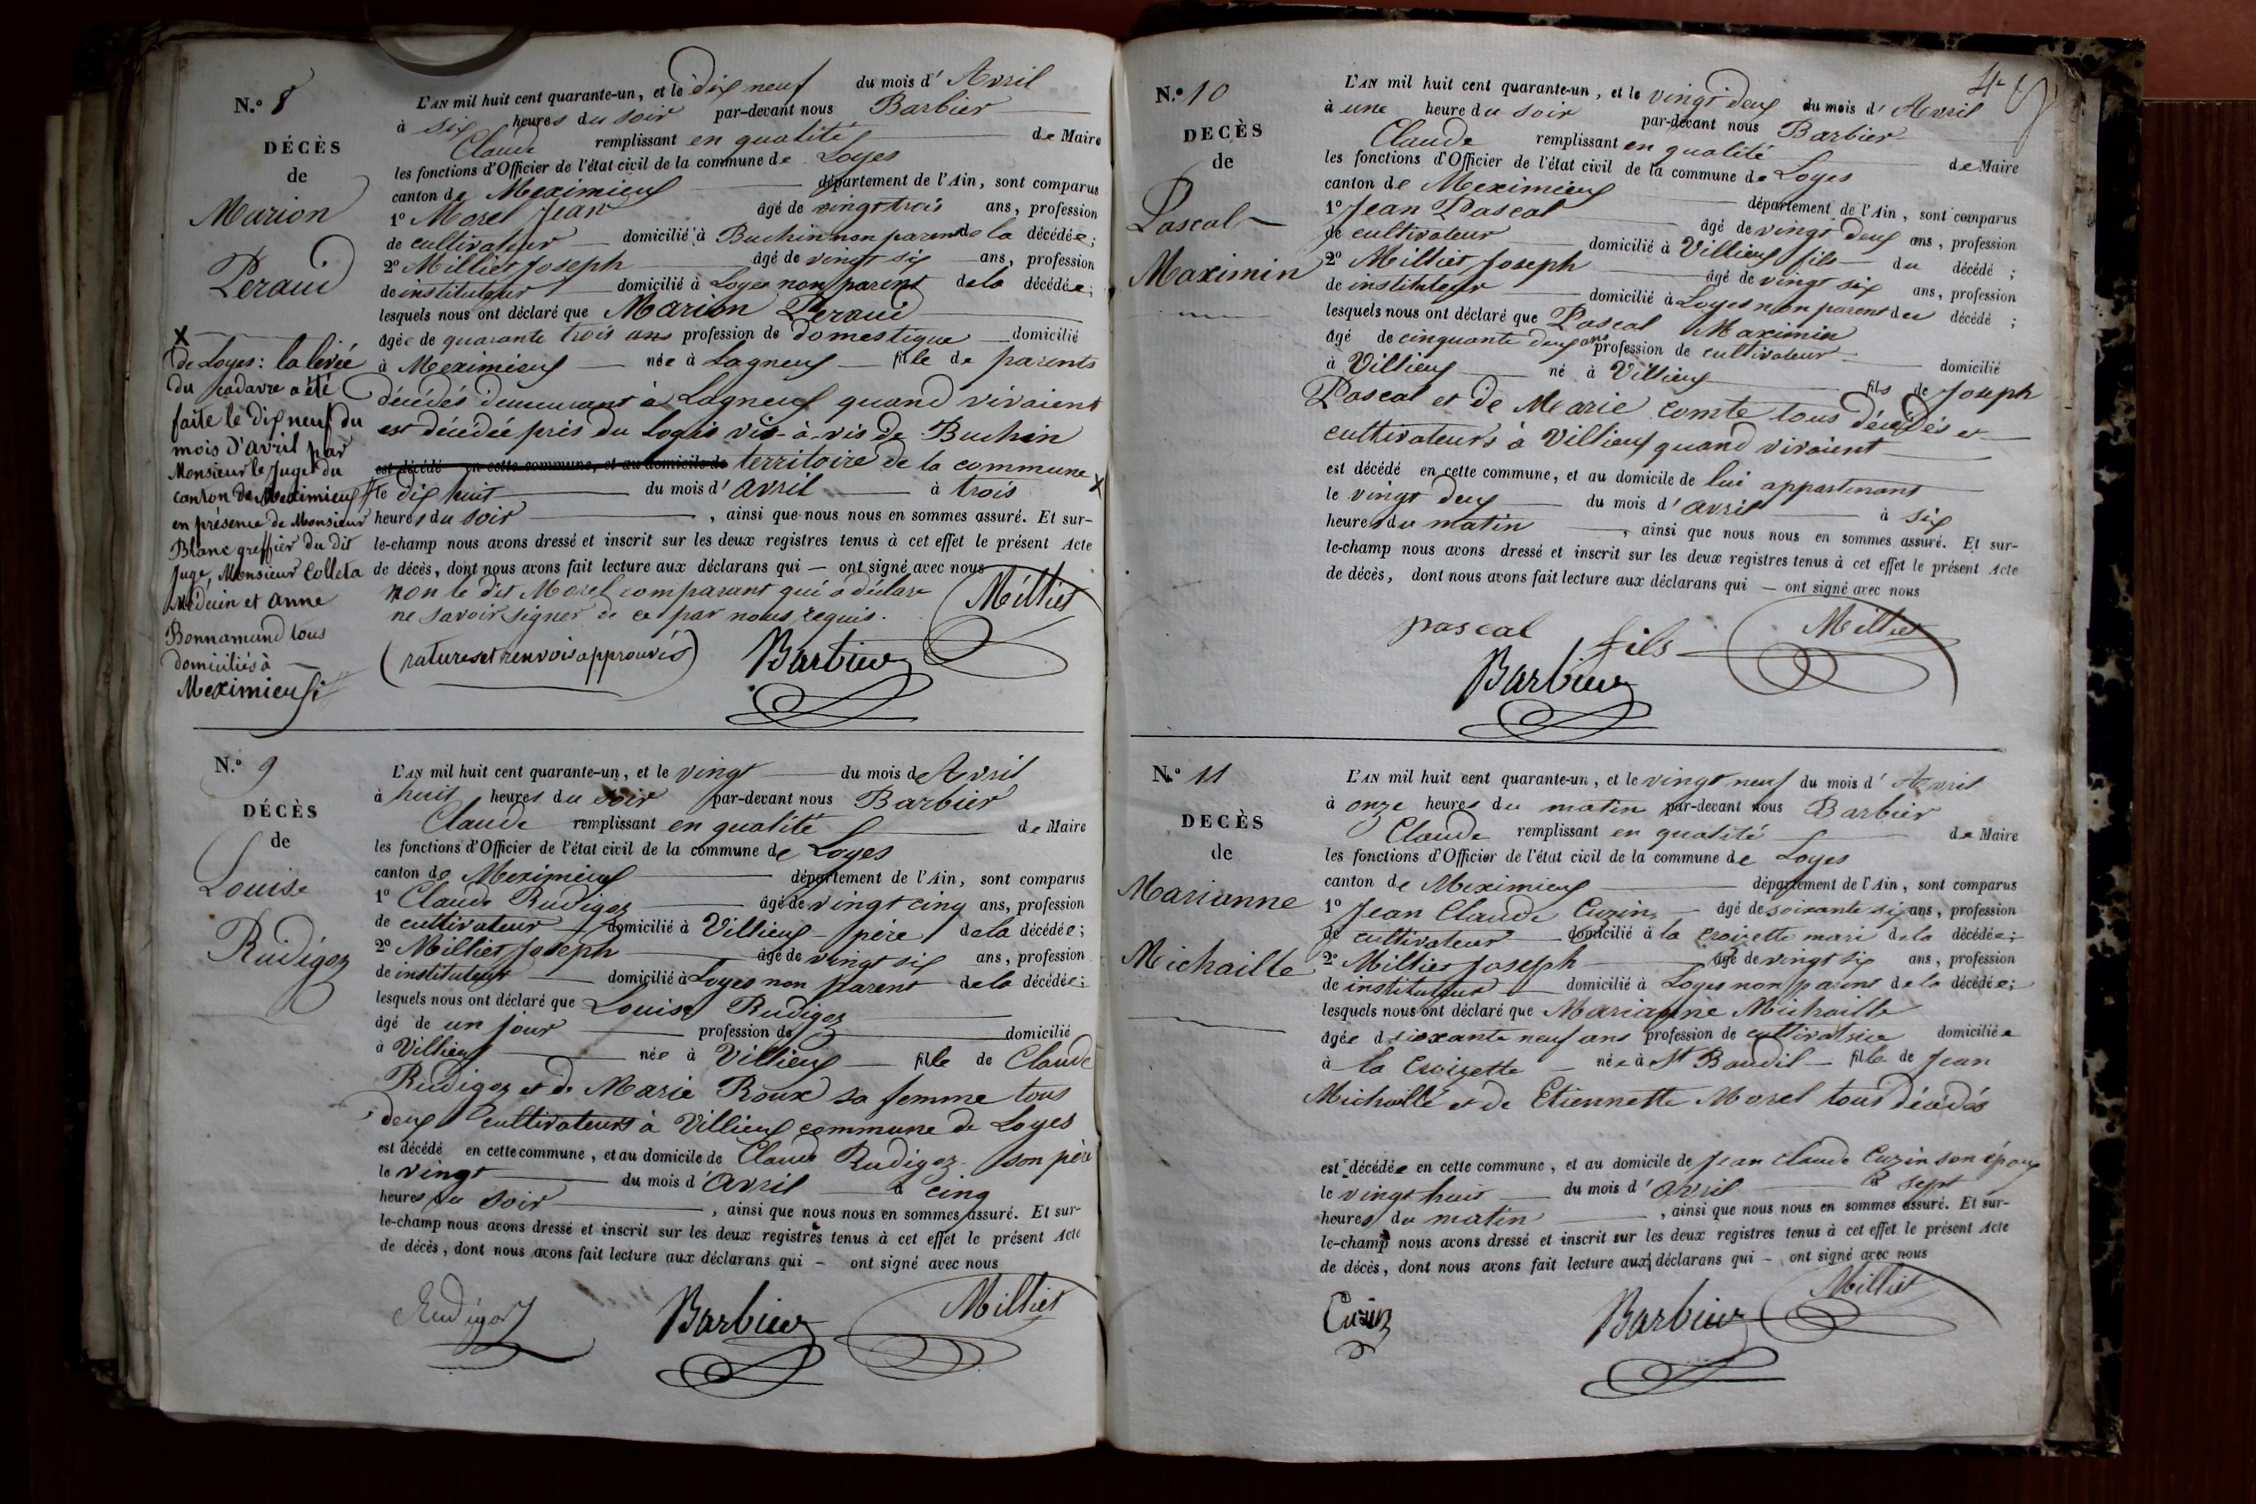 N.º 8
DÉCÈS
de
Marion
Peraud
L'AN mil huit cent quarante-un, et le dix neuf du mois d' Avril
à six heures du soir par-devant nous Barbier
Claude remplissant en qualité de Maire
les fonctions d'Officier de l'état civil de la commune de Loyes
canton de Meximieux département de l'Ain, sont comparus
1º Morel Jean âgé de vingt trois ans, profession
de cultivateur domicilié à Buchin non parent de la décédée;
2º Milliet Joseph âgé de vingt six ans, profession
de instituteur domicilié à Loyes non parent de la décédée;
lesquels nous ont déclaré que Marion Peraud
âgée de quarante trois ans profession de domestique domicilié
à Meximieux née à Lagneux fille de parents
décédés demeurant à Lagneux quand vivaient
est décédée près du Logis vis-à-vis de Buchin
est décédé en cette commune, et au domicile de territoire de la commune X
le dix huit du mois d' avril à trois
heures du soir , ainsi que nous nous en sommes assuré. Et sur-
le-champ nous avons dressé et inscrit sur les deux registres tenus à cet effet le présent Acte
de décès, dont nous avons fait lecture aux déclarans qui — ont signé avec nous
non le dit Morel comparant qui a déclaré
ne savoir signer de ce par nous requis.
(ratures et renvois approuvés)
Barbier
Milliet
X
de Loyes: la levée
du cadavre a été
faite le dix neuf du
mois d'avril par
Monsieur le Juge du
canton de Meximieux
en présence de Monsieur
Blanc greffier du dit
Juge, Monsieur Colleta
Médecin et anne
Bonnamund tous
domiciliés à
Meximieux
N.º 9
DÉCÈS
de
Louise
Rudigoz
L'AN mil huit cent quarante-un, et le vingt du mois d'Avril
à huit heures du soir par-devant nous Barbier
Claude remplissant en qualité de Maire
les fonctions d'Officier de l'état civil de la commune de Loyes
canton de Meximieux département de l'Ain, sont comparus
1º Claude Rudigoz âgé de vingt cinq ans, profession
de cultivateur domicilié à Villieux père de la décédée;
2º Milliet Joseph âgé de vingt six ans, profession
de instituteur domicilié à Loyes non parent de la décédée;
lesquels nous ont déclaré que Louise Rudigoz
âgé de un jour profession de domicilié
à Villieux née à Villieux fille de Claude
Rudigoz et de Marie Roux sa femme tous
deux cultivateurs à Villieux commune de Loyes
est décédé en cette commune, et au domicile de Claude Rudigoz son père
le vingt du mois d'avril à cinq
heures du soir , ainsi que nous nous en sommes assuré. Et sur-
le-champ nous avons dressé et inscrit sur les deux registres tenus à cet effet le présent Acte
de décès, dont nous avons fait lecture aux déclarans qui — ont signé avec nous
Rudigoz
Barbier
Milliet
N.º 10
DECÈS
de
Pascal
Maximin
L'AN mil huit cent quarante-un, et le vingt deux du mois d' Avril
à une heure du soir par-devant nous Barbier
Claude remplissant en qualité de Maire
les fonctions d'Officier de l'état civil de la commune de Loyes
canton de Meximieux département de l'Ain, sont comparus
1º Jean Pascal âgé de vingt deux ans, profession
de cultivateur domicilié à Villieux fils du décédé;
2º Milliet Joseph âgé de vingt six ans, profession
de instituteur domicilié à Loyes non parent du décédé;
lesquels nous ont déclaré que Pascal Maximin
âgé de cinquante deux ans profession de cultivateur domicilié
à Villieux né à Villieux fils de Joseph
Pascal et de Marie Comte tous décédés et
cultivateurs à Villieux quand vivaient
est décédé en cette commune, et au domicile de lui appartenant
le vingt deux du mois d' avril à six
heures du matin , ainsi que nous nous en sommes assuré. Et sur-
le-champ nous avons dressé et inscrit sur les deux registres tenus à cet effet le présent Acte
de décès, dont nous avons fait lecture aux déclarans qui — ont signé avec nous
pascal fils
Milliet
Barbier
N.º 11
DECÈS
de
Marianne
Michaille
L'AN mil huit cent quarante-un, et le vingt neuf du mois d' Avril
à onze heures du matin par-devant nous Barbier
Claude remplissant en qualité de Maire
les fonctions d'Officier de l'état civil de la commune de Loyes
canton de Meximieux département de l'Ain, sont comparus
1º Jean Claude Cuzin âgé de soixante six ans, profession
de cultivateur domicilié à la Croizette mari de la décédée;
2º Milliet Joseph âgé de vingt six ans, profession
de instituteur domicilié à Loyes non parent de la décédée;
lesquels nous ont déclaré que Marianne Michaille
âgée d soixante neuf ans profession de cultivatrice domiciliée
à la Croizette née à St Baudil fille de Jean
Michaille et de Etiennette Morel tous décédés
est décédée en cette commune, et au domicile de Jean Claude Cuzin son époux
le vingt huit du mois d' avril à sept
heures du matin , ainsi que nous nous en sommes assuré. Et sur-
le-champ nous avons dressé et inscrit sur les deux registres tenus à cet effet le présent Acte
de décès, dont nous avons fait lecture aux déclarans qui — ont signé avec nous
Cuzin
Barbier
Milliet